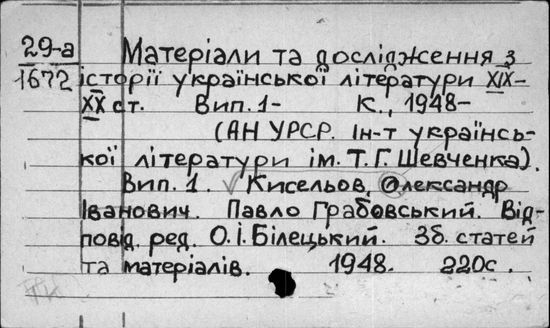 29-а Матеріали та дослідження з
1672 історії української літератури XIX-
XX ст. Вип. 1- К., 1948-
(АН УРСР. Ін-т українсь-
кої літератури ім. Т. Г. Шевченка).
Вип. 1. Кисельов, Олександр
Іванович. Павло Грабовський. Від-
повід. ред. О. І. Білецький. Зб. статей
та матеріалів. 1948. 220с.